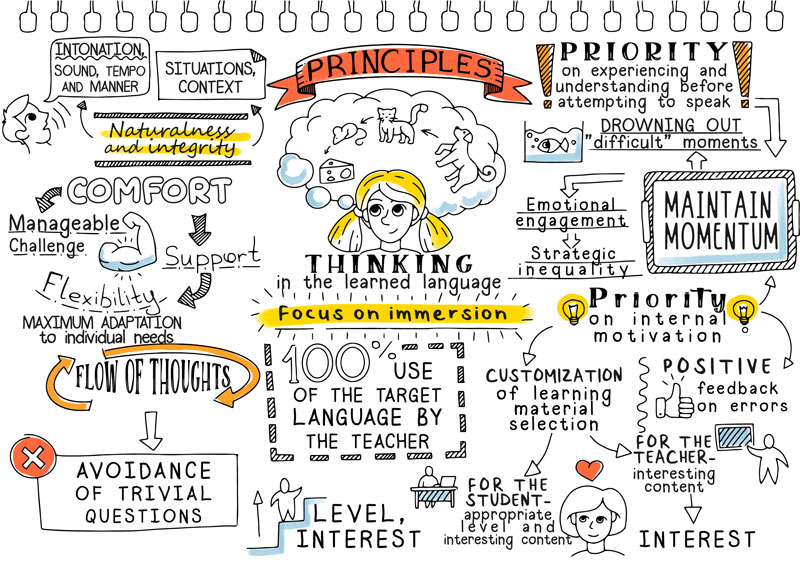 PRINCIPLES
INTONATION,
SOUND, TEMPO
AND MANNER
SITUATIONS,
CONTEXT
Naturalness
and integrity
COMFORT
Manageable
Challenge
Support
Flexibility
MAXIMUM ADAPTATION
to individual needs
FLOW OF THOUGHTS
AVOIDANCE
OF TRIVIAL
QUESTIONS
THINKING
in the learned language
Focus on immersion
100% USE
OF THE TARGET
LANGUAGE BY
THE TEACHER
LEVEL,
INTEREST
PRIORITY
on experiencing and
understanding before
attempting to speak
DROWNING OUT
"difficult" moments
MAINTAIN
MOMENTUM
Emotional
engagement
Strategic
inequality
Priority
on internal
motivation
CUSTOMIZATION
of learning
material
selection
POSITIVE
feedback
on errors
FOR THE
STUDENT-
appropriate
level and
interesting content
FOR THE
TEACHER-
interesting
content
INTEREST